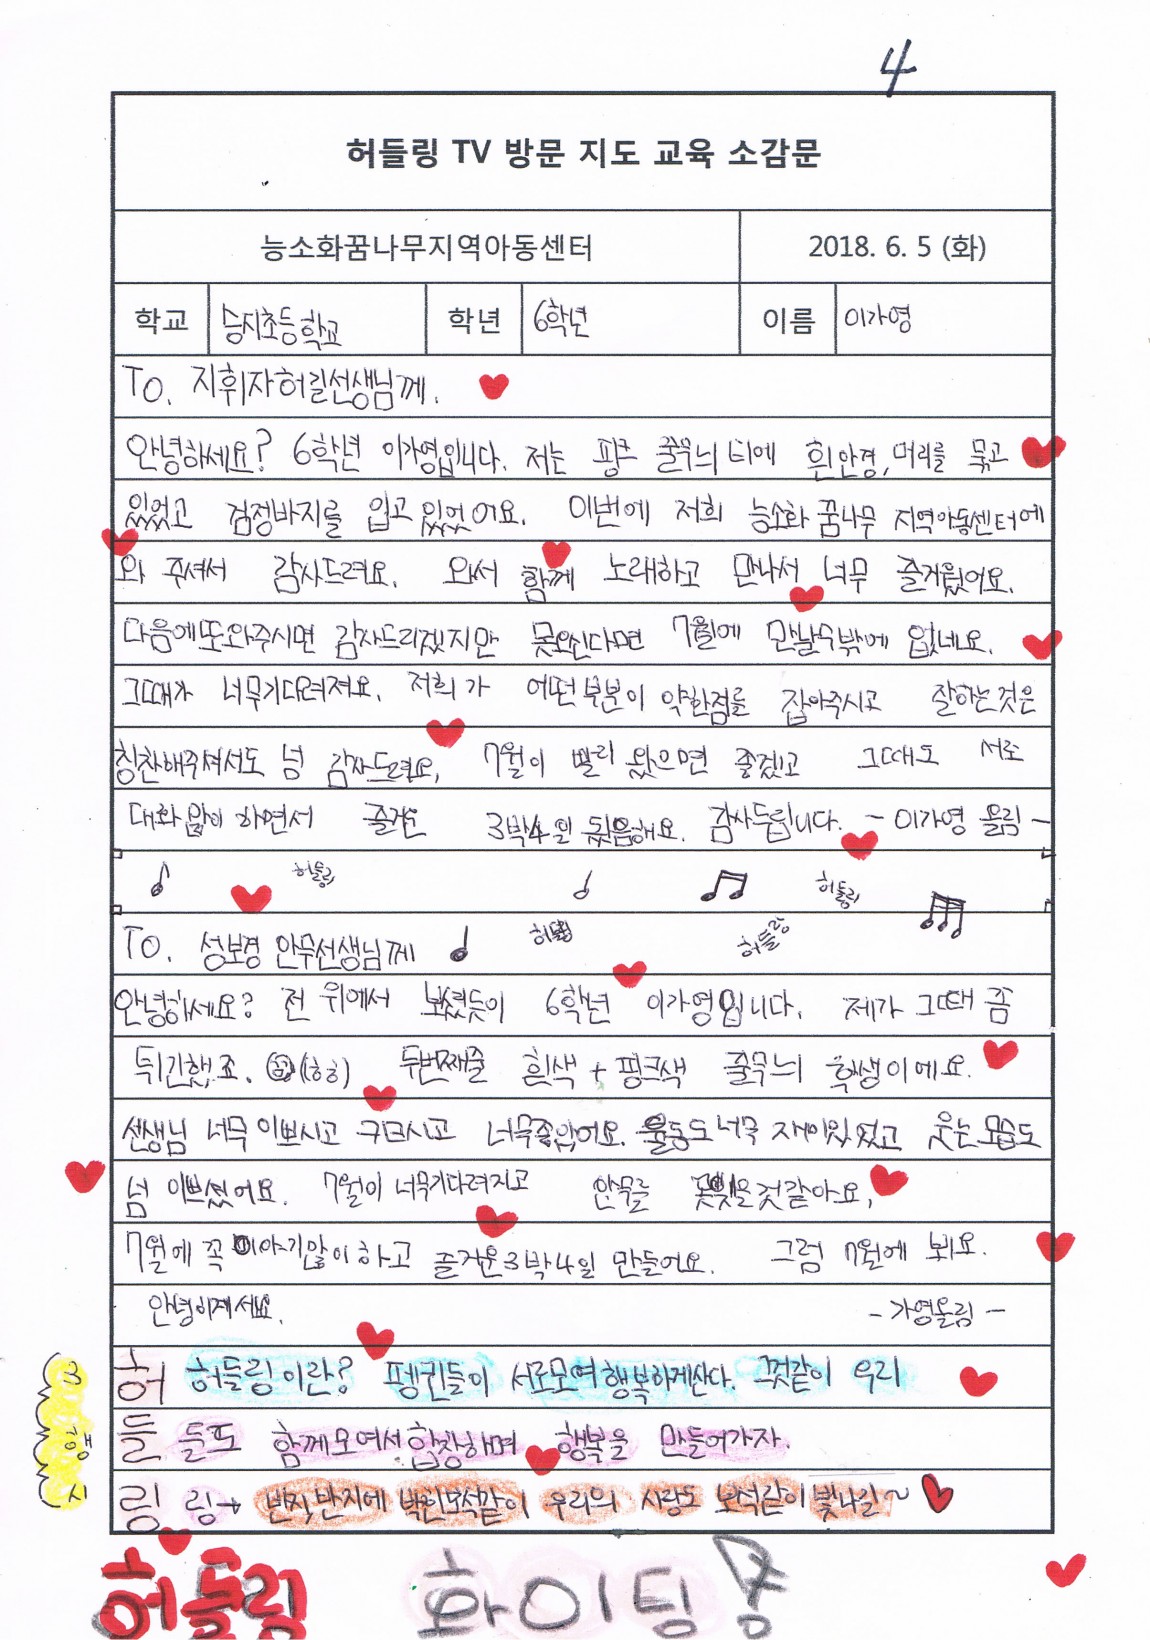 4
허들링 TV 방문 지도 교육 소감문
능소화꿈나무지역아동센터 2018. 6. 5 (화)
학교 승지초등학교 학년 6학년 이름 이가영
To. 지휘자허길선생님께.
안녕하세요? 6학년 이가영입니다. 저는 핑크 줄무늬 티에 흰안경, 머리를 묶고
있었고 검정바지를 입고 있었어요. 이번에 저희 능소화 꿈나무 지역아동센터에
와 주셔서 감사드려요. 와서 함께 노래하고 만나서 너무 즐거웠어요.
다음에또와주시면 감사드리겠지만 못오신다면 7월에 만날수밖에 없네요.
그때가 너무기다려져요. 저희가 어떤부분이 약한점를 잡아주시고 잘하는것은
칭찬해주셔서도 넘 감사드려요, 7월이 빨리 왔으면 좋겠고 그때도 서로
대화많이 하면서 즐거운 3박4일 됬음해요. 감사드립니다. - 이가영 올림 -
허들링 허들링
To. 성보경 안무선생님께 허들링 허들링
안녕하세요? 전 위에서 보셨듯이 6학년 이가영입니다. 제가 그때 좀
튀긴했죠. (ㅎㅎ) 두번째줄 흰색 + 핑크색 줄무늬 학생이에요.
선생님 너무 이쁘시고 너무좋았어요. 율동도 너무 재미있었고 웃는모습도
넘 이쁘셨어요. 7월이 너무기다려지고 안무를 못잊을것같아요,
7월에 꼭 이야기많이하고 즐거운3박4일 만들어요. 그럼 7월에 뵈요.
안녕히계세요. - 가영올림 -
3행시
허 허들링이란? 펭귄들이 서로모여행복하게산다. 그것같이 우리
들 들또 함께모여서 합창하며 행복을 만들어가자.
링 링→ 반직반지에 박힌보석같이 우리의 사랑도 보석같이 빛나길~
허들링 화이팅